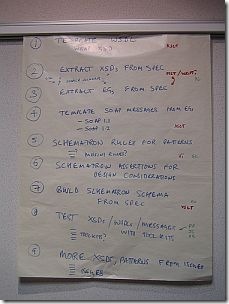 1 TEMPLATE WSDL
XSLT
2 EXTRACT XSDs FROM SPEC
3 EXTRACT EGs FROM SPEC
4 TEMPLATE SOAP MESSAGES FROM EGs
- SOAP 1.1
- SOAP 1.2
XSLT
5 SCHEMATRON RULES FOR PATTERNS
6 SCHEMATRON ASSERTIONS FOR
DESIGN CONSIDERATIONS
7 BUILD SCHEMATRON SCHEMA
FROM SPEC
XSLT
8 TEST XSDs/WSDLs/MESSAGES
WITH TOOLKITS
TOOLKITS?
9 MORE XSDs/PATTERNS FROM ISSUES
ISSUES